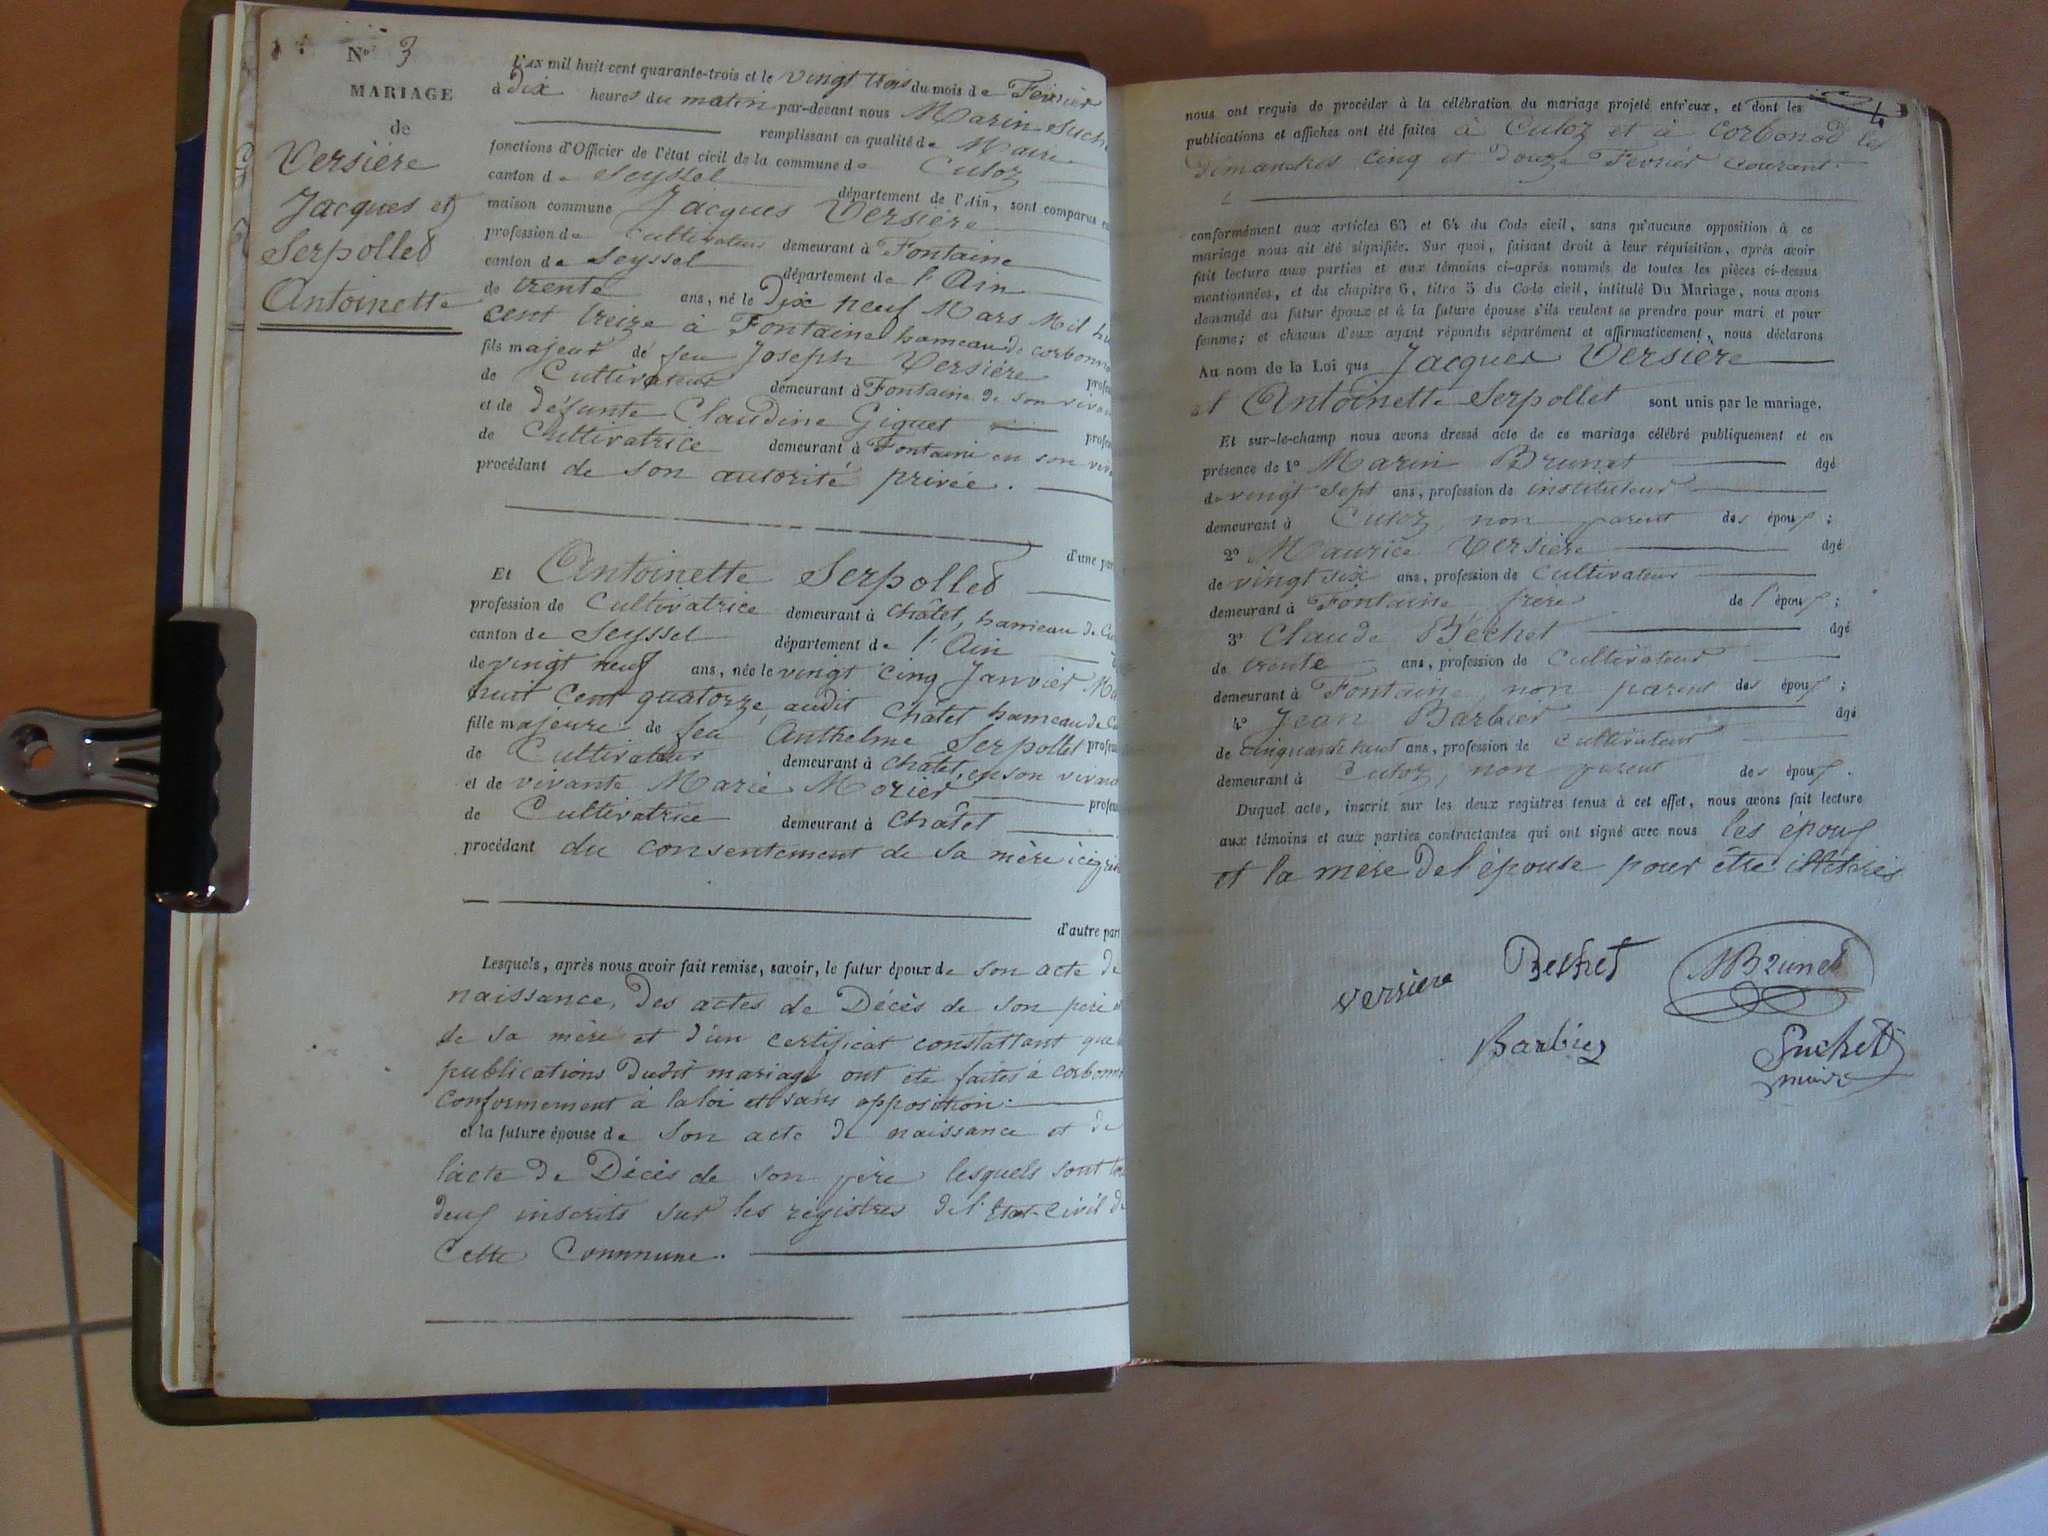 N° 3
MARIAGE
de
Versière
Jacques et
Serpollet
Antoinette
L'AN mil huit cent quarante-trois et le vingt trois du mois de Fevrier
à Dix heures du matin par-devant nous Marin Suchet
remplissant en qualité de Maire
fonctions d'Officier de l'état civil de la commune de Culoz
canton de Seyssel département de l'Ain, sont comparus en
maison commune Jacques Versière
profession de cultivateur demeurant à Fontaine
canton de Seyssel département de l'Ain
de trente ans, né le Dix neuf Mars Mil hu
cent treize à Fontaine hameau de corbonod
fils majeur de feu Joseph Versière profes
de Cultivateur demeurant à Fontaine de son vivant
et de défunte Claudine Giguet profes
de Cultivatrice demeurant à Fontaine en son viva
procédant de son autorité privée.
d'une part
Et Antoinette Serpollet
profession de Cultivatrice demeurant à châtel, hameau de Cu
canton de Seyssel département de l'Ain
de vingt neuf ans, née le vingt cinq Janvier Mil
huit cent quatorze, audit châtel hameau de Cu
fille majeure de feu Anthelme Serpollet profes
de Cultivateur demeurant à châtel, en son vivant
et de vivante Marie Morier profes
de Cultivatrice demeurant à châtel
procédant du consentement de sa mère ici
d'autre part
Lesquels, après nous avoir fait remise, savoir, le futur époux de son acte de
naissance, des actes de Décès de son père et
de sa mère et d'un certificat constattant que
publications dudit mariage ont été faites à corbonod
conformement à la loi et sans opposition.
et la future épouse de son acte de naissance et de
l'acte de Décès de son père lesquels sont tous
deux inscrits sur les registres de l'Etat-Civil de
Cette Commune.
4
nous ont requis de procéder à la célébration du mariage projeté entr'eux, et dont les
publications et affiches ont été faites à Culoz et à corbonod les
Dimanches cinq et douze Fevrier courant.
conformément aux articles 63 et 64 du Code civil, sans qu'aucune opposition à ce
mariage nous ait été signifiée. Sur quoi, faisant droit à leur réquisition, après avoir
fait lecture aux parties et aux témoins ci-après nommés de toutes les pièces ci-dessus
mentionnées, et du chapitre 6, titre 5 du Code civil, intitulé Du Mariage, nous avons
demandé au futur époux et à la future épouse s'ils veulent se prendre pour mari et pour
femme; et chacun d'eux ayant répondu séparément et affirmativement, nous déclarons
Au nom de la Loi que Jacques Versière
et Antoinette Serpollet sont unis par le mariage.
Et sur-le-champ nous avons dressé acte de ce mariage célébré publiquement et en
présence de 1° Marin Brunet âgé
de vingt sept ans, profession de instituteur
demeurant à Culoz, non parent des époux;
2° Maurice Versière âgé
de vingt six ans, profession de cultivateur
demeurant à Fontaine, frere de l'époux;
3° Claude Bechet âgé
de trente ans, profession de cultivateur
demeurant à Fontaine, non parent des époux;
4° Jean Barbier âgé
de cinquante huit ans, profession de cultivateur
demeurant à Culoz, non parent des époux.
Duquel acte, inscrit sur les deux registres tenus à cet effet, nous avons fait lecture
aux témoins et aux parties contractantes qui ont signé avec nous les époux
et la mere de l'épouse pour être illetérés
Versiere Bechet MBrunet
Barbier Suchet
maire